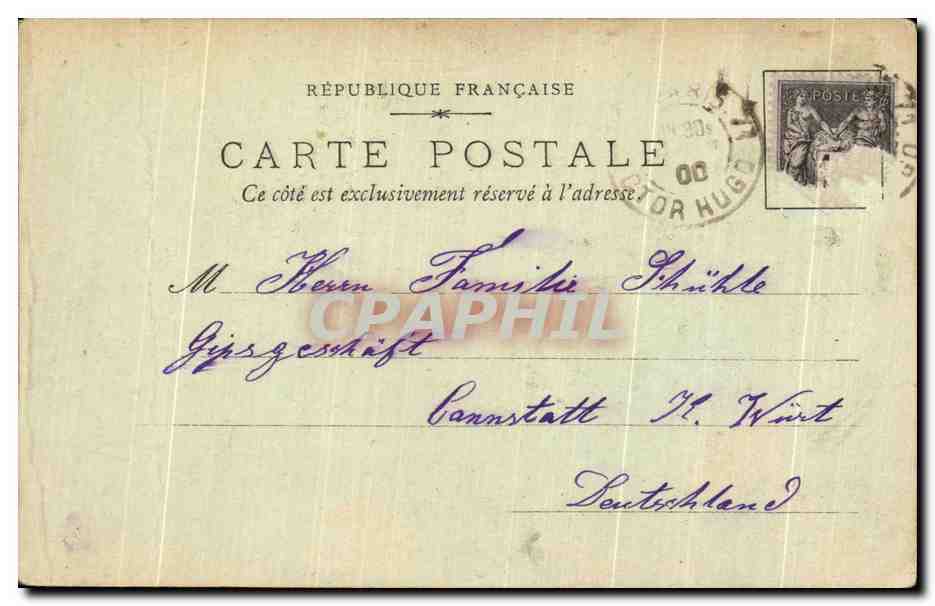 RÉPUBLIQUE FRANÇAISE
CARTE POSTALE
Ce côté est exclusivement réservé à l'adresse.
POSTE
00
TOR HUGO
M Herrn Familie Schühle
CPAPHIL
Gipsgeschäft
Cannstatt K. Würt
Deutschland